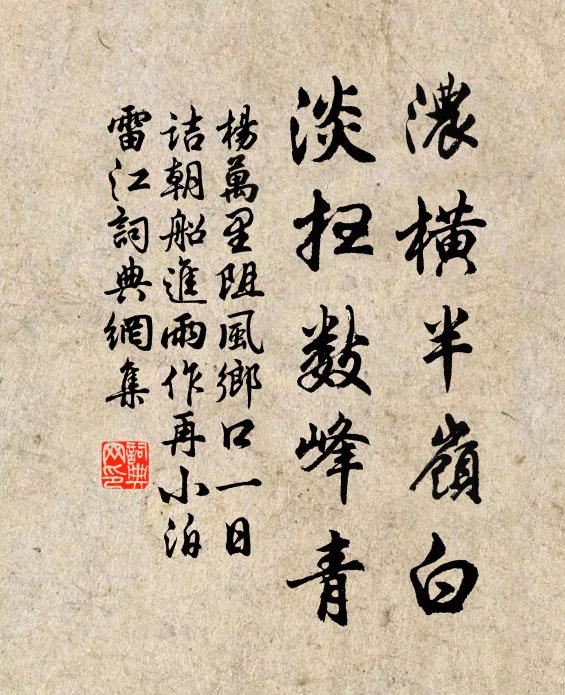 濃橫半嶺白
淡扫数峰青
楊萬里阻風鄉口一日
詰朝船進雨作再小泊
雷江詞典網集
詞典
网印